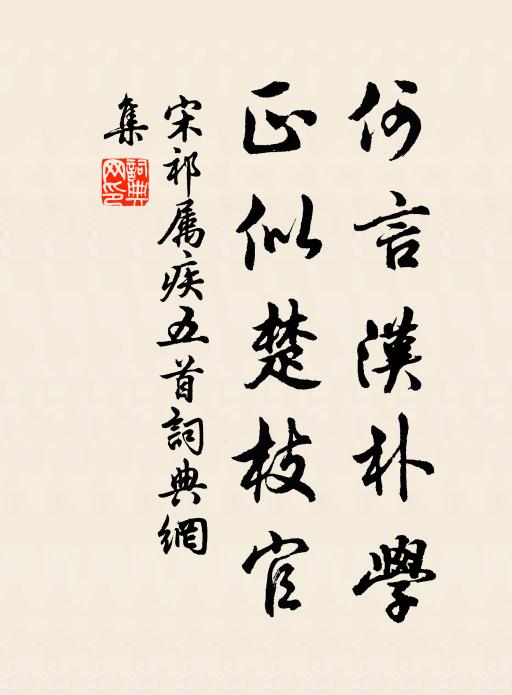 何言漢朴學
正似楚枝官
宋祁属疾五首詞典網
集
詞典網印